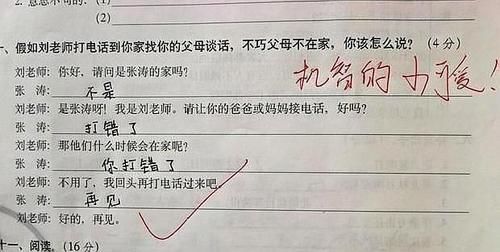 (2)
、假如刘老师打电话到你家找你的父母谈话，不巧父母不在家，你该怎么说？(4分)
刘老师：你好，请问是张涛的家吗？
张 涛：不是
机智的小可爱！
刘老师：是张涛呀！我是刘老师。请让你的爸爸或妈妈接电话，好吗？
张 涛：打错了
刘老师：那他们什么时候会在家呢？
张 涛：你打错了
刘老师：不用了，我回头再打电话过来吧。
张 涛：再见
刘老师：好的，再见。
十一、阅读。(16分)